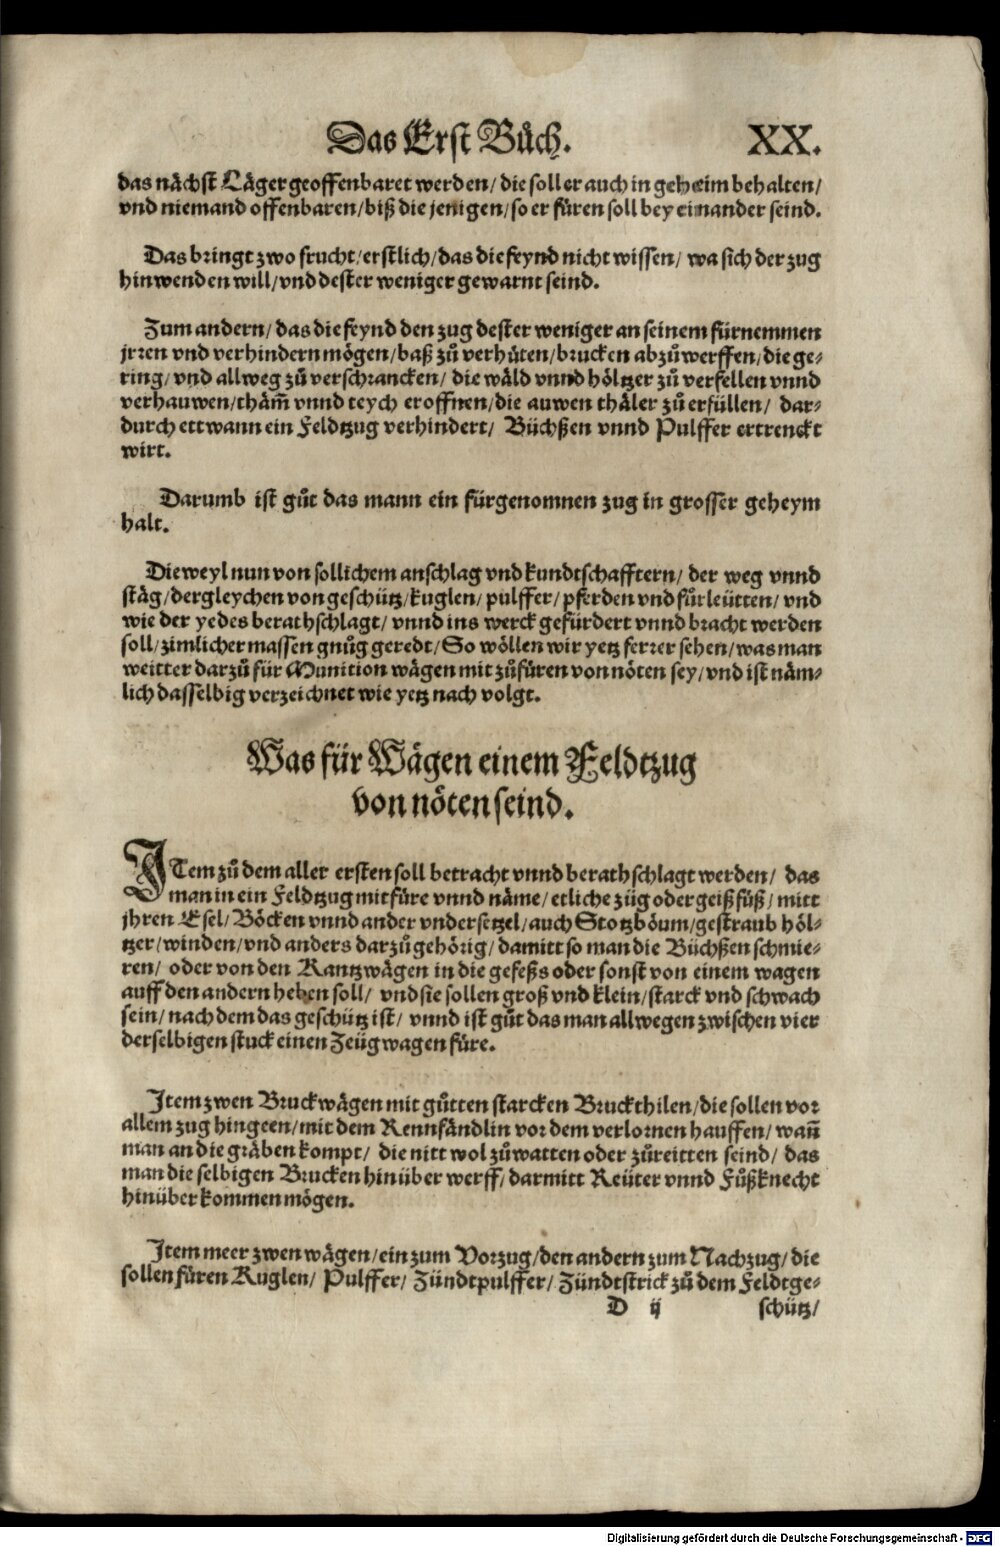 Das Erst Bůch. XX.
das nächst Läger geoffenbaret werden / die soll er auch in geheim behalten /
vnd niemand offenbaren / biß die jenigen / so er füren soll bey einander seind.
Das bringt zwo frucht / erstlich / das die feynd nicht wissen / wa sich der zug
hinwenden will / vnd dester weniger gewarnt seind.
Zum andern / das die feynd den zug dester weniger an seinem fürnemmen
jrren vnd verhindern mögen / baß zů verhüten / brucken abzůwerffen / die ge⸗
ring / vnd all weg zů verschrancken / die wäld vnnd höltzer zů verfellen vnnd
verhauwen / thäm̃ vnnd teych eroffnen / die auwen thäler zů erfüllen / dar⸗
durch ettwann ein Feldtzug verhindert / Büchßen vnnd Pulffer ertrenckt
wirt.
Darumb ist gůt das mann ein fürgenomnen zug in grosser geheym
halt.
Die weyl nun von sollichem anschlag vnd kundtschafftern / der weg vnnd
stäg / dergleychen von geschütz / kuglen / pulffer / pferden vnd fůrleütten / vnd
wie der yedes berathschlagt / vnnd ins werck gefürdert vnnd bracht werden
soll / zimlicher massen gnůg geredt / So wöllen wir yetz ferrer sehen / was man
weitter darzů für Munition wägen mit zůfüren von nöten sey / vnd ist näm⸗
lich dasselbig verzeichnet wie yetz nach volgt.
Was für Wägen einem Feldtzug
von nöten seind.
JTem zů dem aller ersten soll betracht vnnd berathschlagt werden / das
man in ein Feldtzug mitfüre vnnd näme / etliche züg oder geißfüß / mitt
jhren Esel / Böcken vnnd ander vndersetzel / auch Stotzböum / gestraub höl⸗
tzer / winden / vnd anders darzů gehörig / damitt so man die Büchßen schmie⸗
ren / oder von den Kantzwägen in die gefeßs oder sonst von einem wagen
auff den andern heben soll / vnd sie sollen groß vnd klein / starck vnd schwach
sein / nach dem das geschütz ist / vnnd ist gůt das man allwegen zwischen vier
derselbigen stuck einen Zeügwagen füre.
Jtem zwen Bruckwägen mit gůtten starcken Bruckthilen / die sollen vor
allem zug hingeen / mit dem Rennfändlin vor dem verlornen hauffen / wañ
man an die gräben kompt / die nitt wol zůwatten oder zůreitten seind / das
man die selbigen Brucken hinüber werff / darmitt Reüter vnnd Fůßknecht
hinüber kommen mögen.
Jtem meer zwen wägen / ein zum Vorzug / den andern zum Nachzug / die
sollen füren Kuglen / Pulffer / Zündtpulffer / Zündtstrick zů dem Feldtge⸗
D ij schütz /
Digitalisierung gefördert durch die Deutsche Forschungsgemeinschaft - DFG